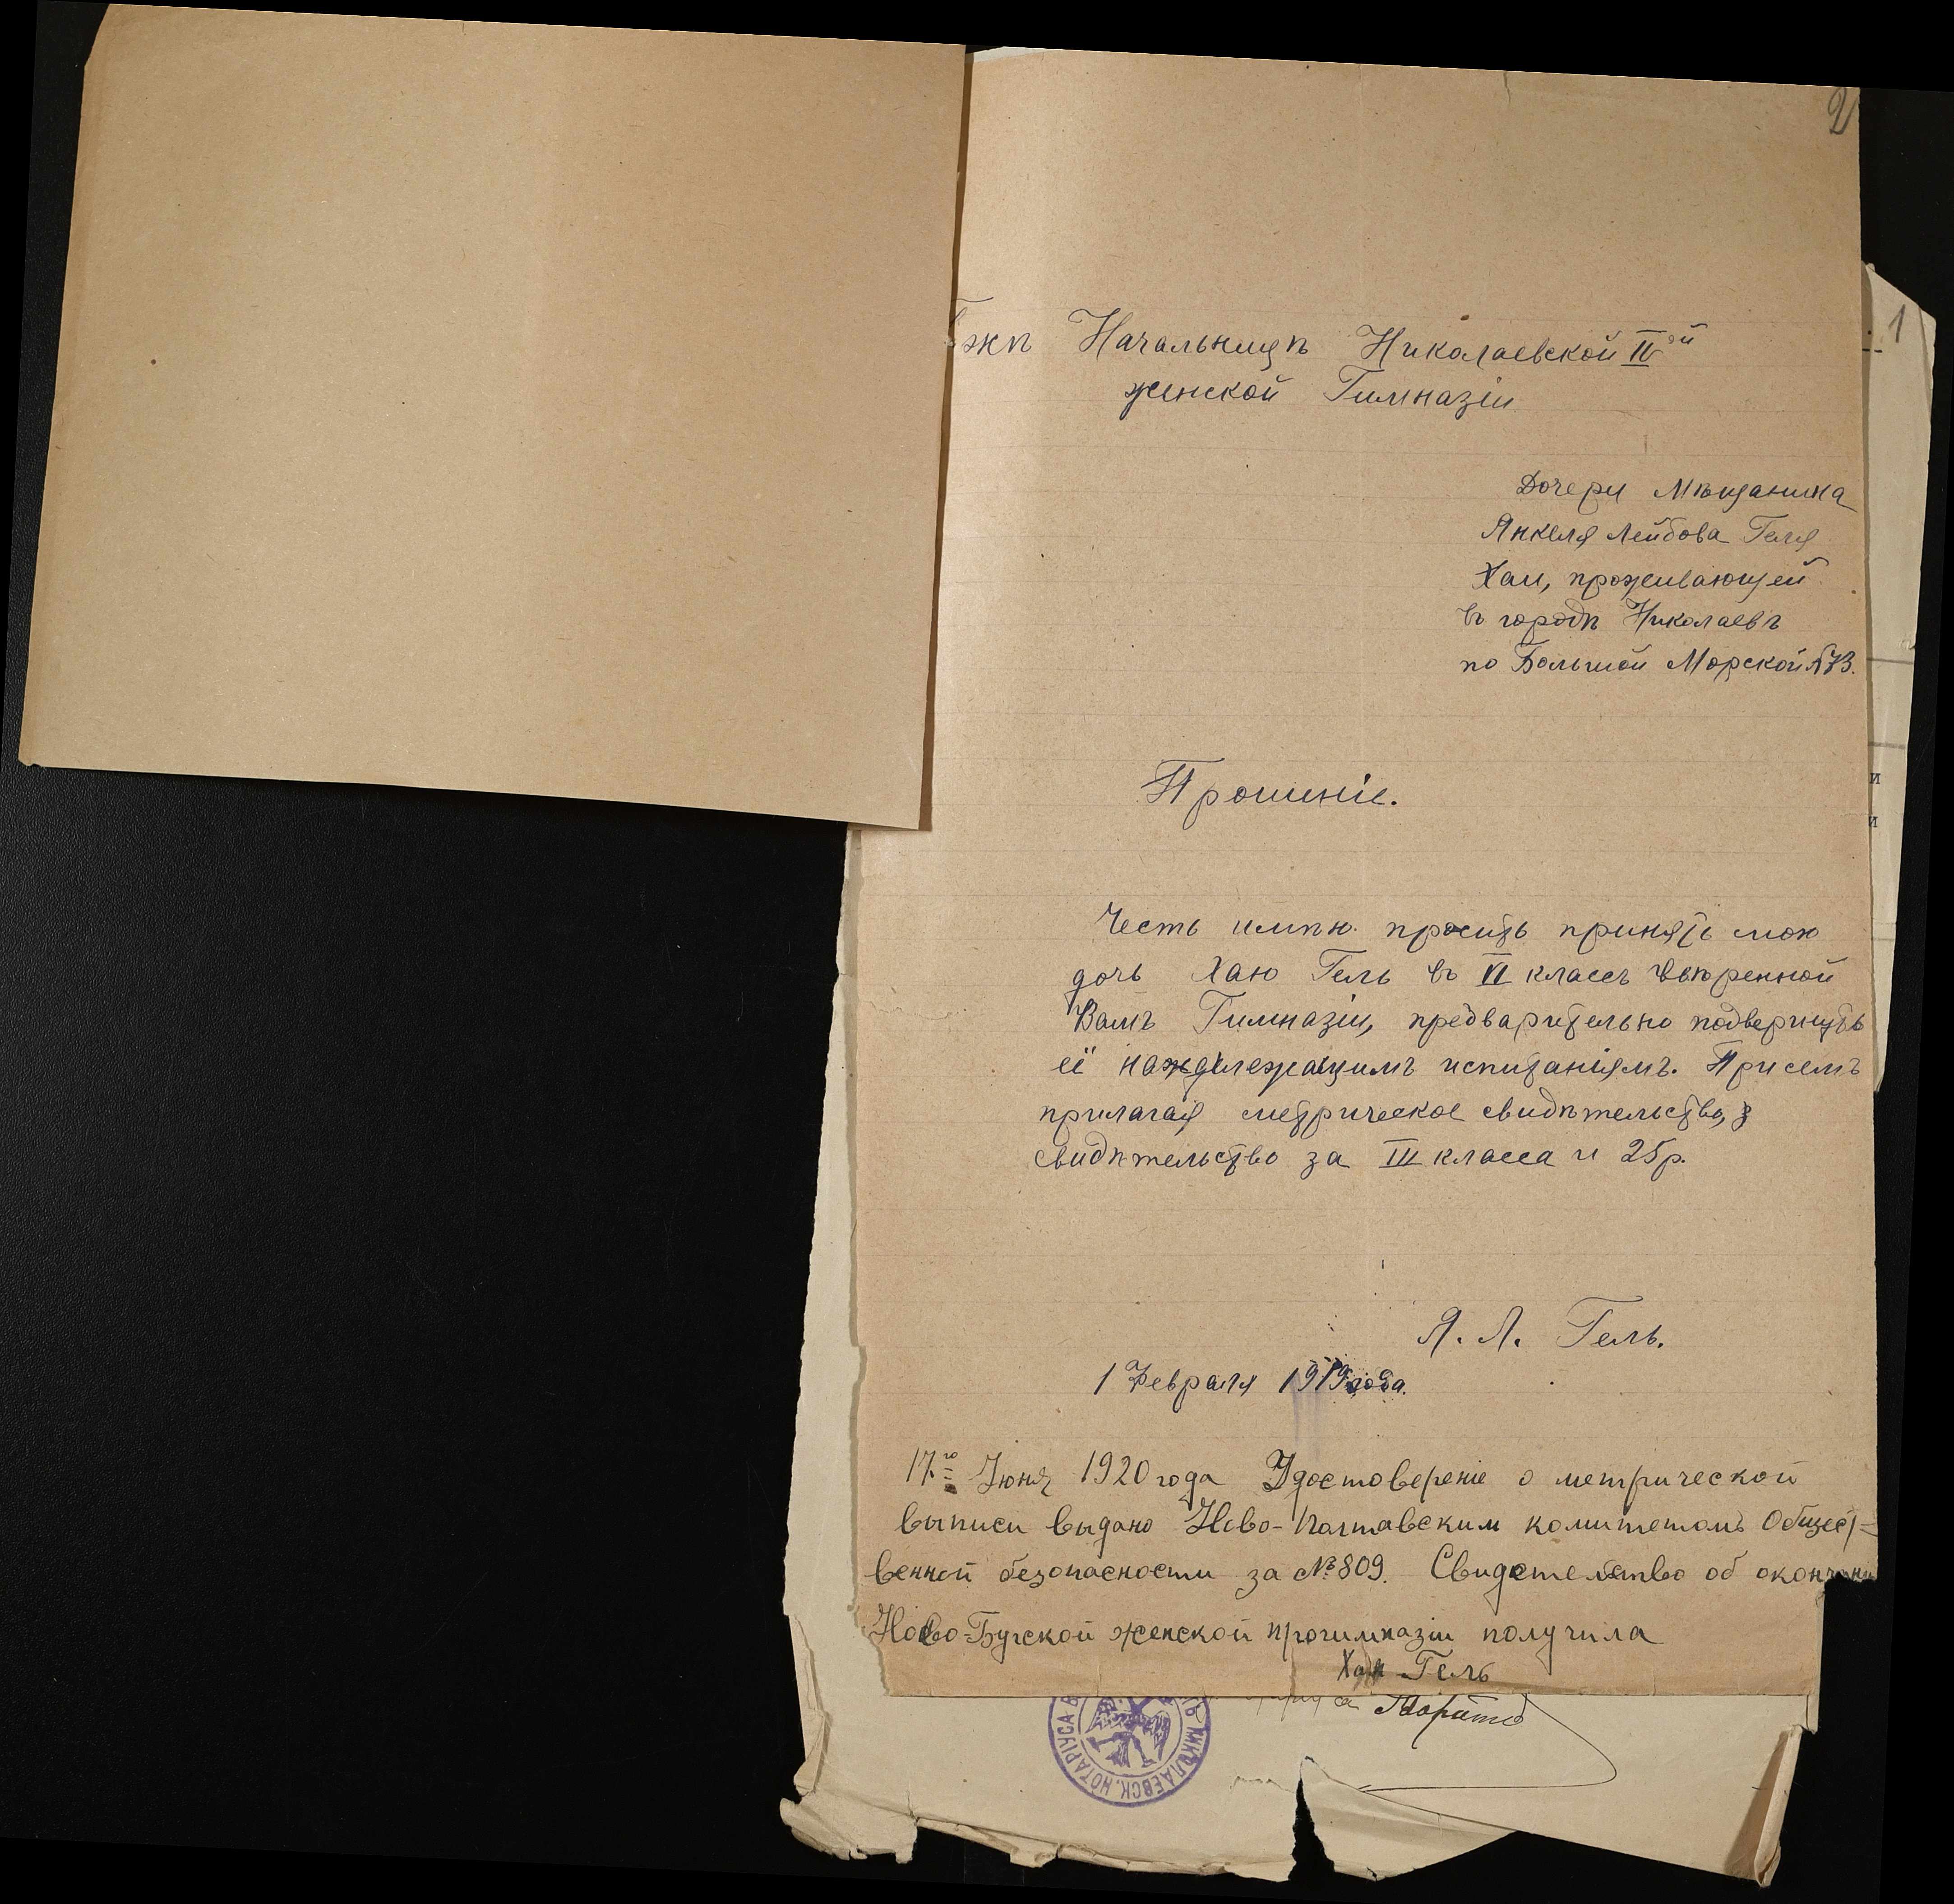 2
1
Начальницѣ Николаевской IIой
женской Гимназіи
Дочери Мѣщанина
Янкеля Лейбова Геля
Хаи, проживающей
въ городѣ Николаевъ
по Большой Морской
Прошеніе.
и
и
Честь имѣю просить принять мою
дочь Хаю Гель въ VI классъ Ввѣренной
Вамъ Гимназіи, предварительно подвергнуть
её испытаніямъ. При семъ
прилагая метрическое свидѣтельство,
свидѣтельство за III класса и 25р.
Я. Л. Гель.
1 Февраля 1919 года.
17го Іюня 1920 года Удостоверение о метрической
выписи выдано Ново-Полтавским комитетомъ Общест-
венной безопасности за №809. Свидетельство об
Ново-Бугской женской прогимназіи получила
Хая Гель
НИКОЛАЕВСК. НОТАРІУСА